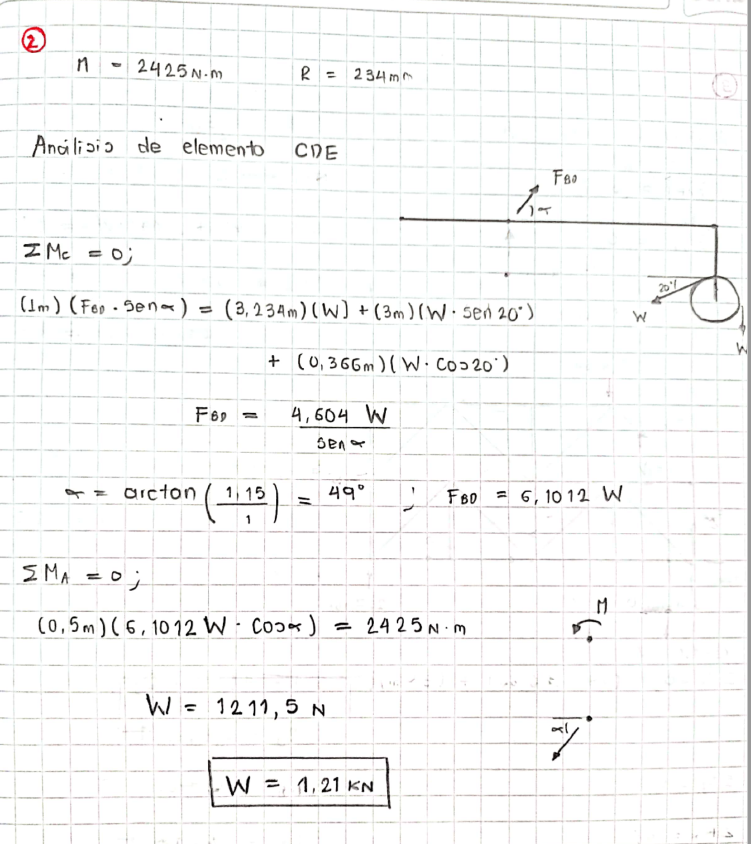 2
M = 2425 N·m R = 234 mm
Análisis de elemento CDE
F_BD
α
Σ Mc = 0;
20°
(1m) (F_BD · sen α) = (3,234m) (W) + (3m) (W · sen 20°)
W
+ (0,366m) (W · Cos 20°)
W
F_BD = 4,604 W / sen α
α = arctan (1,15 / 1) = 49° ; F_BD = 6,1012 W
Σ M_A = 0;
M
(0,5m) (6,1012 W · Cos α) = 2425 N·m
W = 1211,5 N
α
W = 1,21 KN